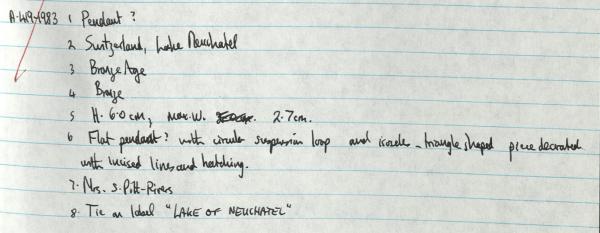 A.419.1983 1 Pendant?
2 Switzerland, Lake Neuchatel
3 Bronze Age
4 Bronze
5 H. 6.0cm, max.W. 2.7cm.
6 Flat pendant? with circular suspension loop and isosceles-triangle shaped piece decorated
with incised lines and hatching.
7. Mrs. S. Pitt-Rivers
8. Tie on label "LAKE OF NEUCHATEL"